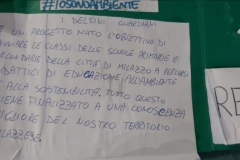 #IOSONOAMBIENTE
I DELFINI GUARDIANI
È UN PROGETTO NATO L'OBIETTIVO DI
AVVIARE LE CLASSI DELLE SCUOLE PRIMARIE E
SECONDARIE DELLA CITTÀ DI MILAZZO A PERCORSI
DIDATTICI DI EDUCAZIONE ALL'AMBIENTE
E ALLA SOSTENIBILITÀ. TUTTO QUESTO
VIENE FINALIZZATO A UNA CONOSCENZA
MIGLIORE DEL NOSTRO TERRITORIO
MILAZZESE
RE